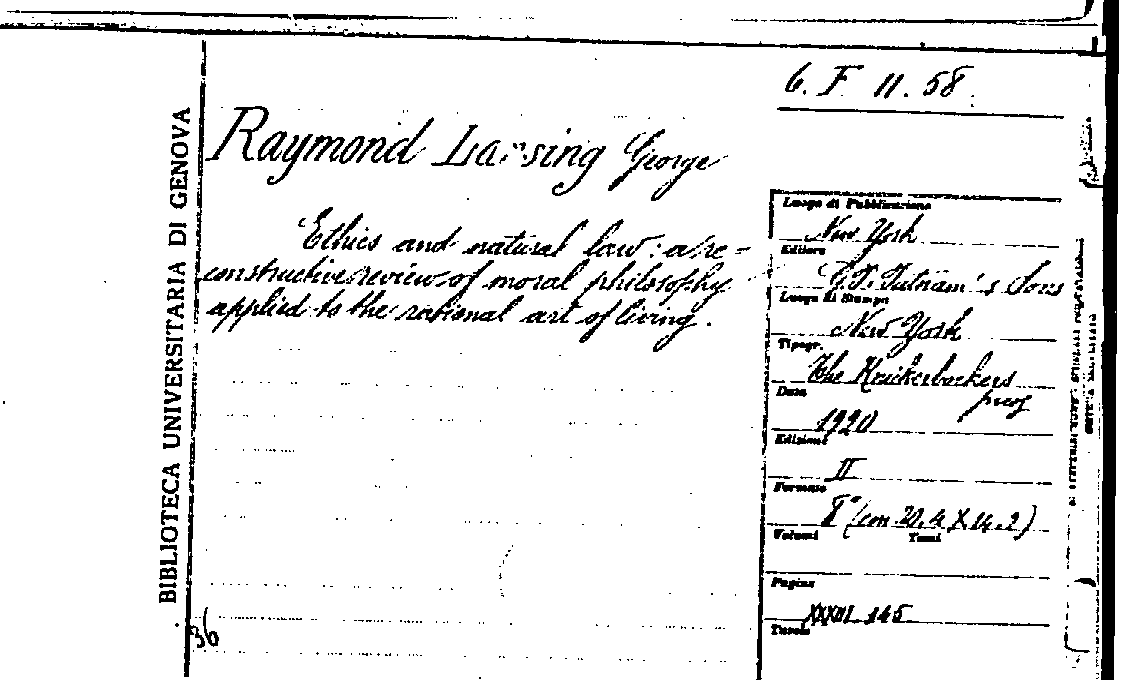 6. F 11. 58.
BIBLIOTECA UNIVERSITARIA DI GENOVA
Raymond Lansing George
Ethics and natural law: a re-
constructive review of moral philosophy
applied to the rational art of living.
36
Luogo di Pubblicazione
New York
Editore
G. P. Putnam's Sons
Luogo di Stampa
New York
Tipogr.
The Knickerbockers
press
Data
1920
Edizione
II
Formato
8° (cm 21.4 X 14.2)
Volumi Tomi
Pagine
XXXII 145
Tavole